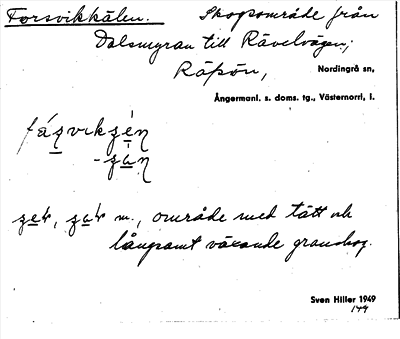 Forsvikkälen. Skogsområde från
Dalsmyran till Rävelvägen;
Räpön, Nordingrå sn,
Ångermanl. s. doms. tg., Västernorrl. l.
område med tätt och
långsamt växande granskog.
Sven Hiller 1949
149